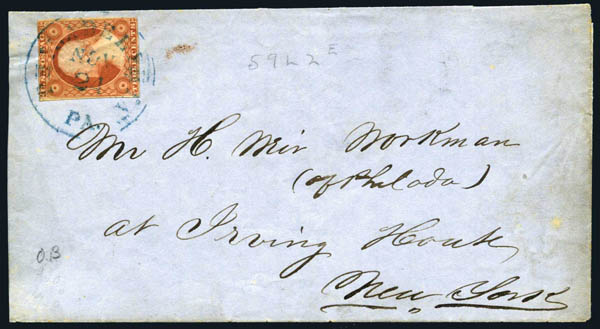 NOV
21
PA.
59L2 E
Mr H. Weir Workman
(of Philada)
at Irving House
New York
O.B